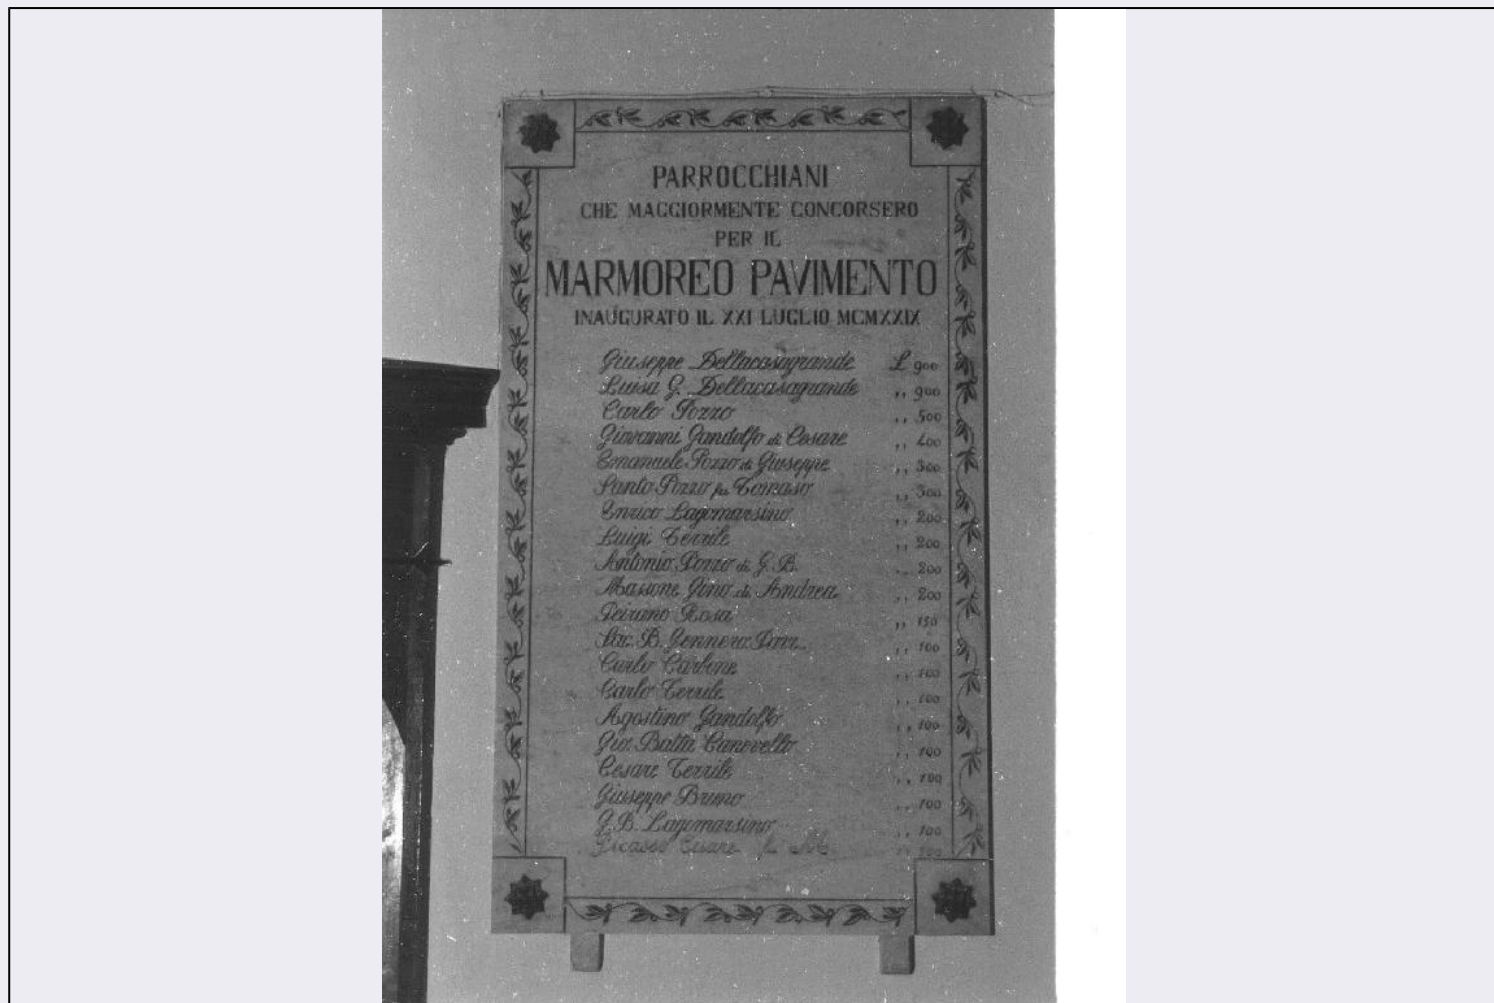 PARROCCHIANI
CHE MAGGIORMENTE CONCORSERO
PER IL
MARMOREO PAVIMENTO
INAUGURATO IL XXI LUGLIO MCMXXIX
Giuseppe Dellacasagrande £ 900
Luisa G. Dellacasagrande ,, 900
Carlo Pozzo ,, 500
Giovanni Gandolfo di Cesare ,, 400
Emanuele Pozzo di Giuseppe ,, 300
Santo Pozzo fu Tomaso ,, 300
Enrico Lagomarsino ,, 200
Luigi Terrile ,, 200
Antonio Pozzo di G. B. ,, 200
Massone Gino di Andrea ,, 200
Peirano Rosa ,, 150
Sac. B. Gennero Parr. ,, 100
Carlo Carbone ,, 100
Carlo Terrile ,, 100
Agostino Gandolfo ,, 100
Gio. Batta Canevello ,, 100
Cesare Terrile ,, 100
Giuseppe Bruno ,, 100
G. B. Lagomarsino ,, 100
Picasso Cesare